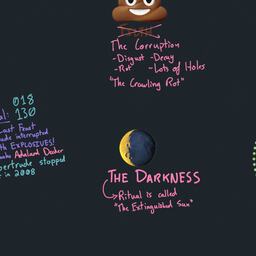 The Corruption
-Disgust -Decay
-Rot -Lots of Holes
"The Crawling Rot"
018
al: 130
Last Feast
ude interrupted
th EXPLOSIVES!
Adelard Dekker
ertrude stopped
in 2008
THE DARKNESS
Ritual is called
"The Extinguished Sun"